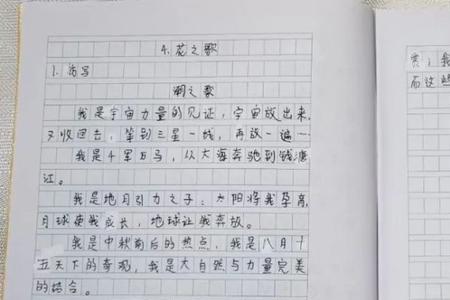 4.花之歌
1.仿写
潮之歌
我是宇宙力量的见证,宇宙放出来,
又收回去,等到三星一线,再放一遍。
我是千军万马,从大海奔驰到钱塘
江。
我是地月引力之子:太阳将我孕育,
月球使我成长,地球让我奔放。
我是中秋前后的热点,我是八月十
五天下的奇观,我是大自然与力量完美
的结合。
亮;我
而这些